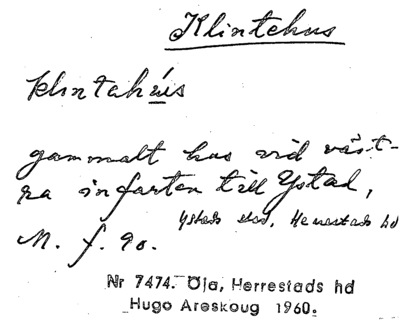 Klintehus
klintahús
gammalt hus vid väst-
ra infarten till Ystad,
Ystads stad, Herrestads hd
M. f. 90.
Nr 7474. Öja, Herrestads hd
Hugo Areskoug 1960.